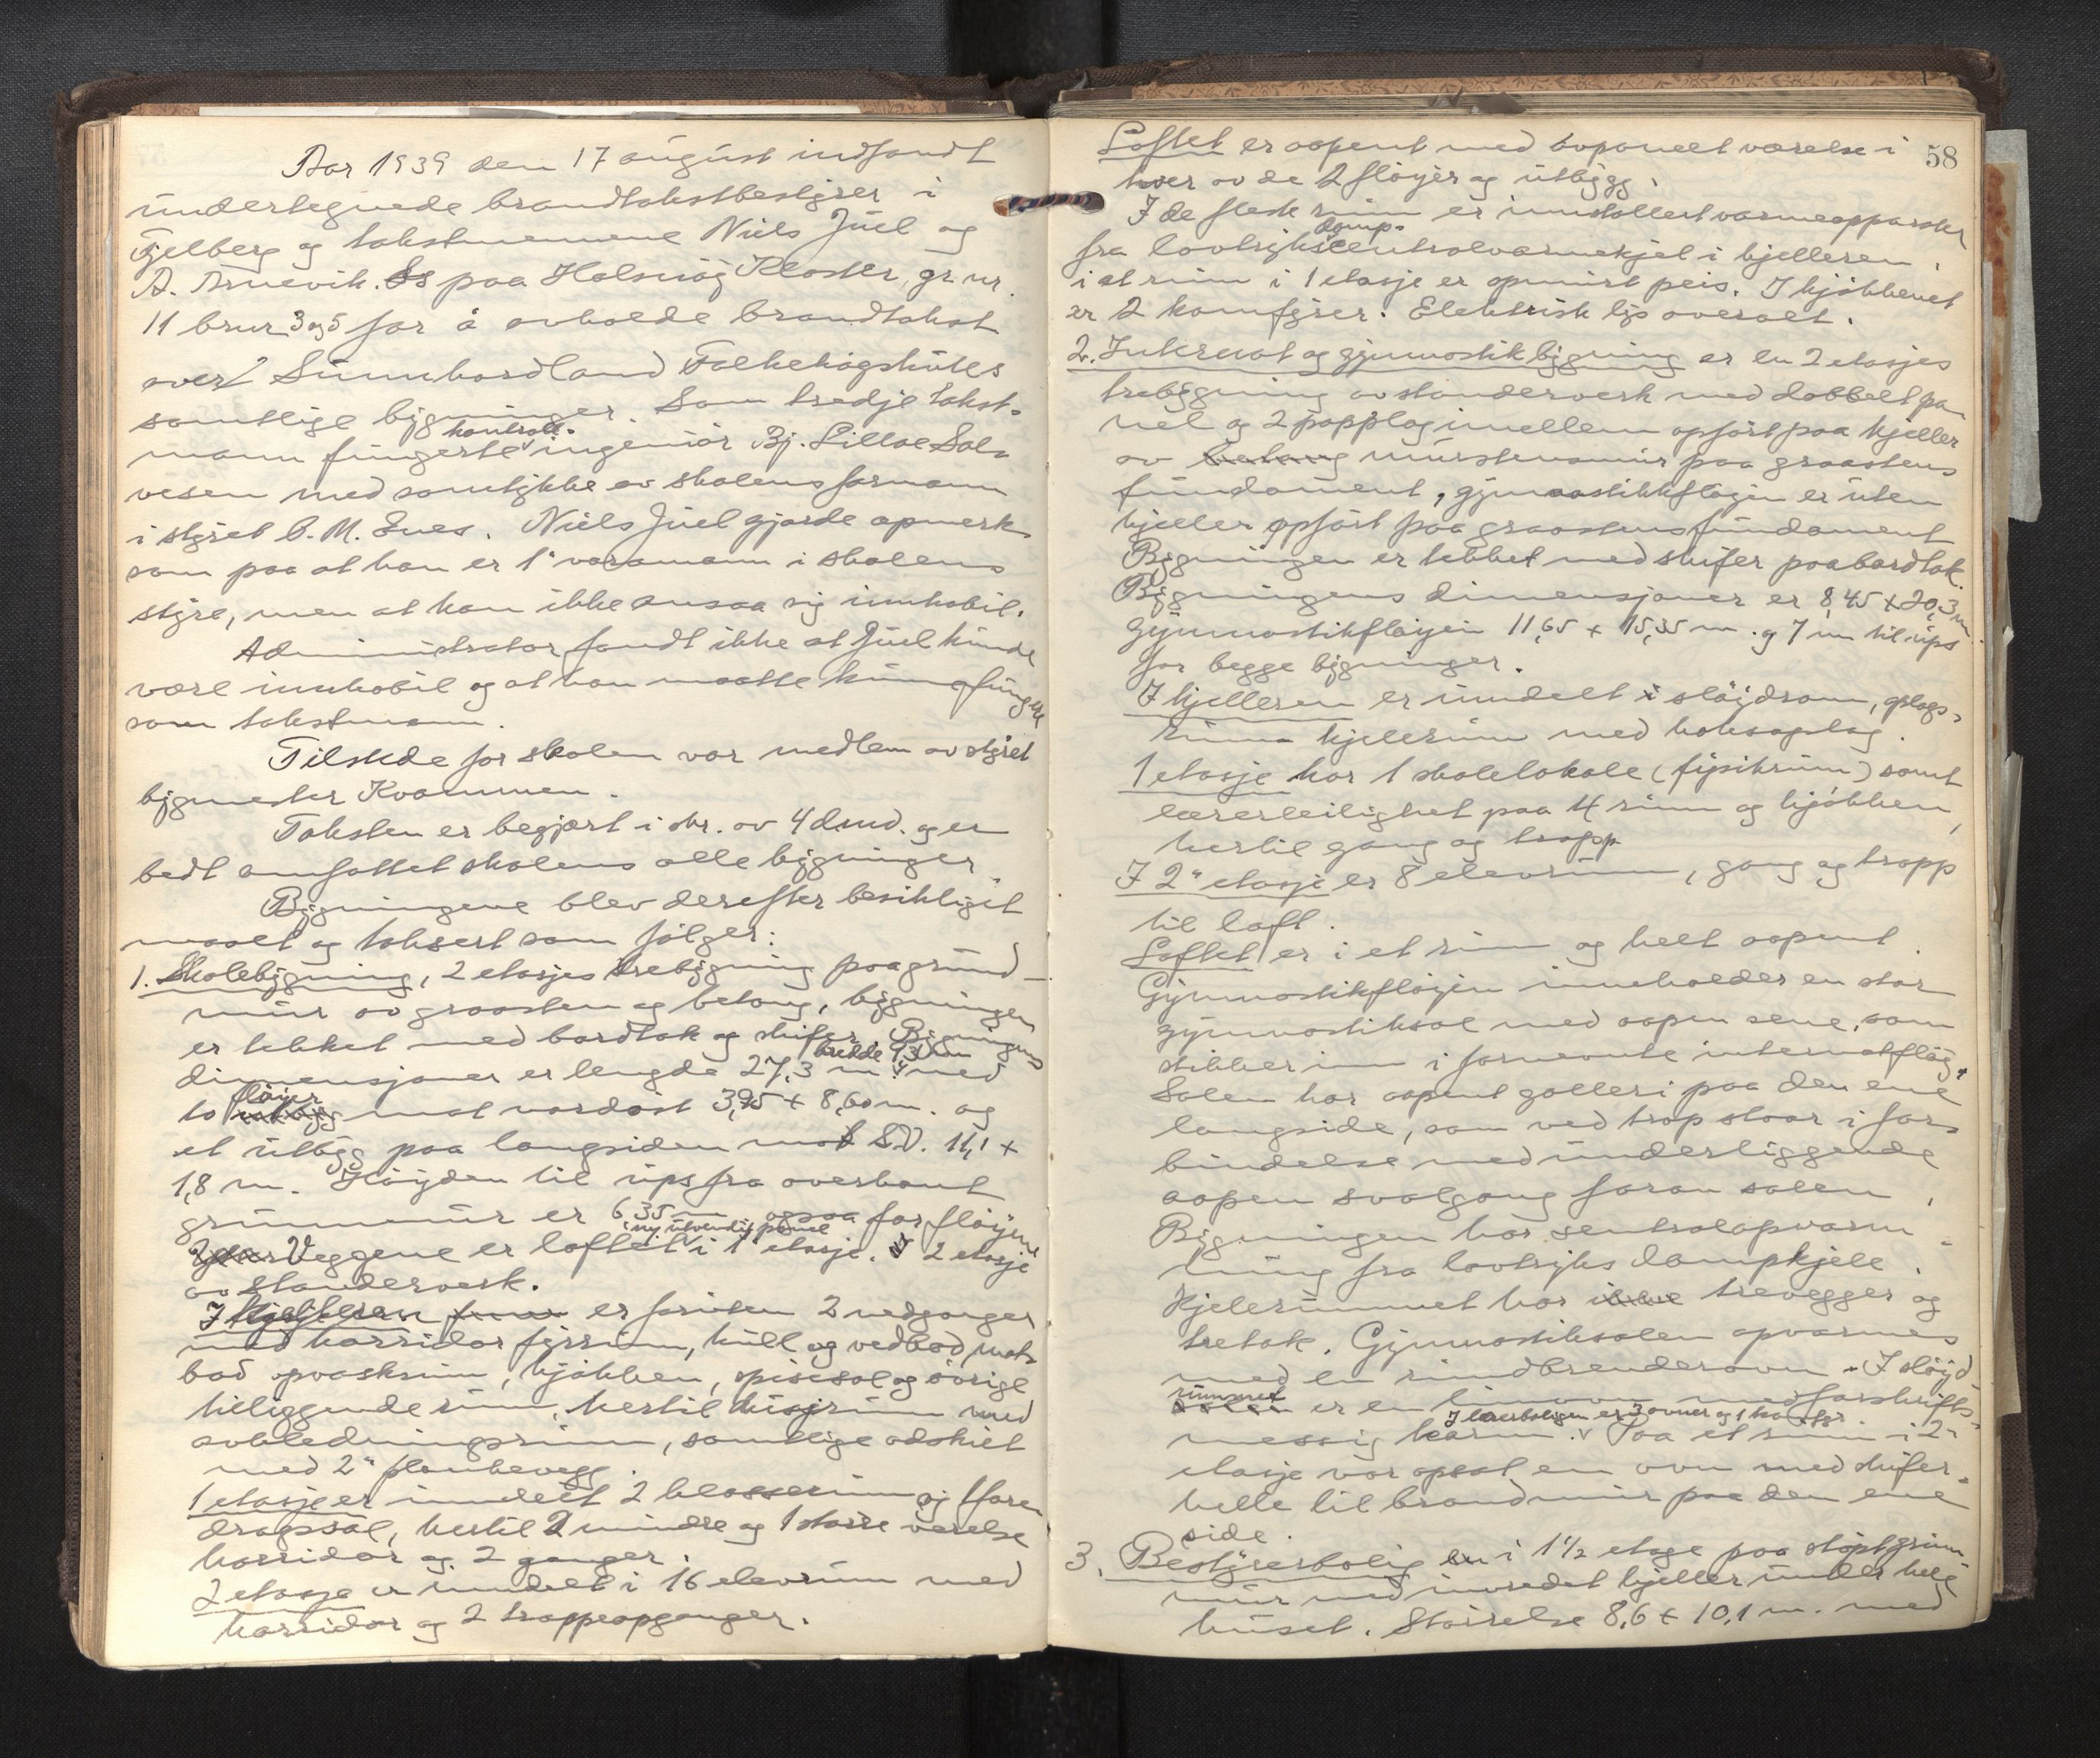 Aar 1939 den 17 august indfandt
undertegnede brandtakstbestyrer i
Fjelberg og takstmennene Niels Juel og
A. Arnevik. Ss paa Halsnøy Kloster, gr. nr.
11 brur 3 og 5 for å avholde brandtakst
over Sunnhordland Folkehøgskules
samtlige bygninger. Som tredje takst-
mann fungerte kontroll- ingeniør Bj. Lillae Sol-
vesen med samtykke av skolens formann
i styret O. M. Enes. Niels Juel gjorde opmerk-
som paa at han er 1' varamann i skolens
styre, men at han ikke ansaa sig innhabil.
Administrator fandt ikke at Juel kunde
være innhabil og at han maatte kunne fungere
som takstmann.
Tilstede for skolen var medlem av styret
bygmester Kvammen.
Taksten er begjært i skr. av 4 ds. md. og er
bedt omfattet skolens alle bygninger.
Bygningene blev derefter besiktiget
maalt og taksert som følger:
1. Skolebygning, 2 etasjes trebygning paa grund-
mur av graasten og betong, bygningen
er tekket med bordtak og skifer. Bygningens
dimensjoner er lengde 27,3 m. bredde 9,3 m med
to fløyer utbygg mot nordøst 3,95 + 8,60 m. og
et utbygg paa langsiden mot S.V. 11,1 +
1,8 m. Høyden til ups fra overkant
grunnmur er 6,35 m ogsaa for fløyene
Veggene er laftet i ny utvendig panel i 1' etasje. I 2 etasje
av standerverk.
I kjelleren er foruten 2 nedganger
med korridor fyrrum, kull og vedbod, mat-
bod opvaskrum, kjøkken, spisesal og øvrige
tiliggende rum, hertil husjerum med
avkledningsrum, samtlige adskilt
med 2" plankevegg.
1 etasje er inndelt 2 klasserum og 1 fore-
dragssal, hertil 2 mindre og 1 større værelse
korridor og 2 ganger.
2 etasje er inndelt i 16 elevrum med
korridor og 2 trappeopganger.
58
Loftet er aapent med toponeet værelse i
hver av de 2 fløyer og utbygg.
I de fleste rum er innstallert varmeapparater
fra lavtryks damp- centralvarmekjel i kjelleren.
i et rum i 1 etasje er opmurt peis. I kjøkkenet
er 2 komfyrer. Elektrisk lys overalt.
2. Internat og gymnastikbygning er en 2 etasjes
trebygning av standerverk med dobbelt pa-
nel og 2 papplag imellem opført paa kjeller
av betong murstensmur paa graastens
fundament, gymnastikkfløyen er uten
kjeller opført paa graastensfundament
Bygningen er tekket med skifer paa bordtak.
Bygningens dimensjoner er 8,45 + 20,3 m
Gymnastikfløyen 11,65 + 15,35 m. og 7 m til ups
for begge bygninger.
I kjelleren er inndelt i sløjdrom, oplags-
rum kjelerum med koksoplag.
1 etasje har 1 skolelokale (fysikrum) samt
lærerleilighet paa 4 rum og kjøkken,
hertil gang og trapp.
I 2" etasje er 8 elevrum, gang og trapp
til loft.
Loftet er i et rum og helt aapent.
Gymnastikfløyen inneholder en stor
gymnastiksal med aapen sene, som
stikker inn i fornevnte internatfløy.
Salen har aapent galleri paa den ene
langside, som ved trap staar i for-
bindelse med underliggende
aapen svalgang foran salen,
Bygningen har sentralopvarm-
ning fra lavtryks dampkjele.
Kjelerummet har ikke trevegger og
tretak. Gymnastiksalen opvarmes
med en rundbrenderovn. I sløjd-
rummet er en limovn med forskrifts-
messig karm. I lærerboligen er 3 ovner og 1 komfyr Paa et rum i 2"
etasje var opsat en ovn med skifer-
helle til brandmur paa den ene
side.
3. Bestyrerbolig en i 1 1/2 etage paa støpt grun-
mur med innredet kjeller under hele
huset. Størrelse 8,6 + 10,1 m. med